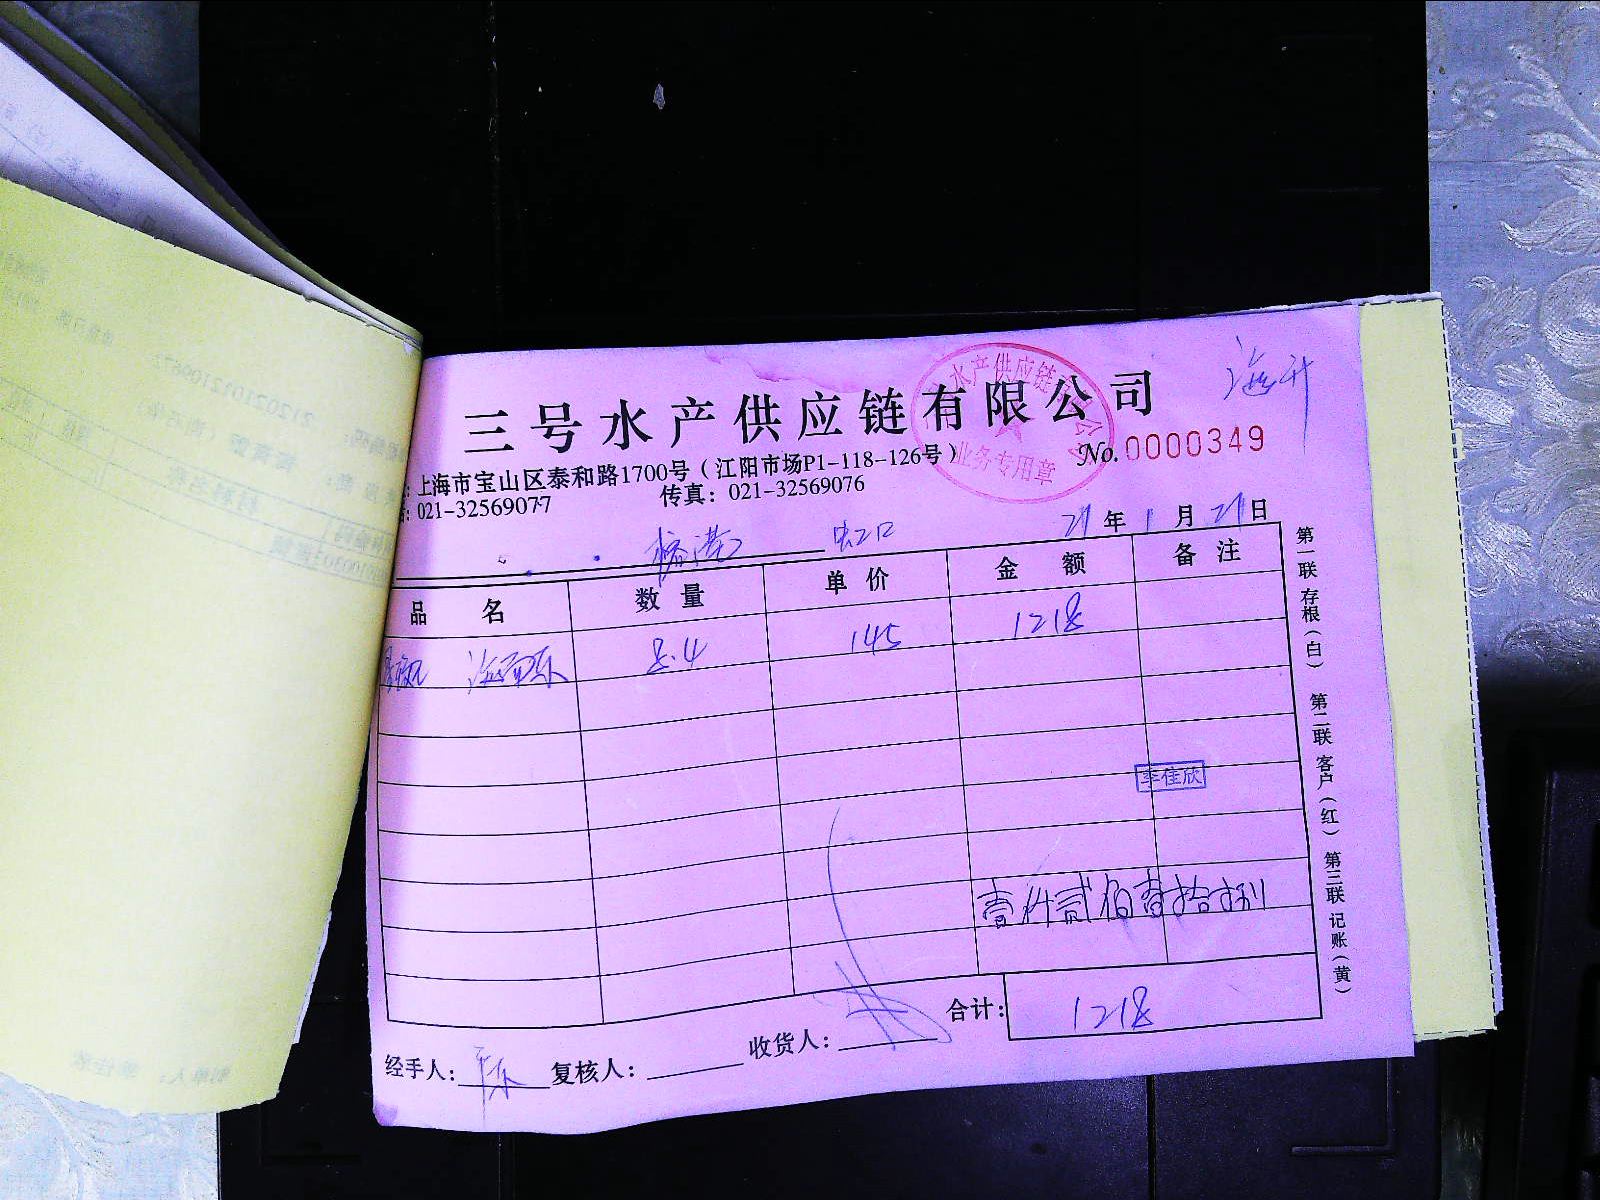 海升
三号水产供应链有限公司
水产供应链
业务专用章
No.0000349
:上海市宝山区泰和路1700号（江阳市场P1-118-126号）
:021-32569077 传真：021-32569076
港 虹口 21年1月21日
品 名 数 量 单 价 金 额 备 注
8.4 145 1218
李佳欣
壹仟贰佰壹拾捌
合计：1218
经手人： 复核人： 收货人：
第一联 存根（白） 第二联 客户（红） 第三联 记账（黄）